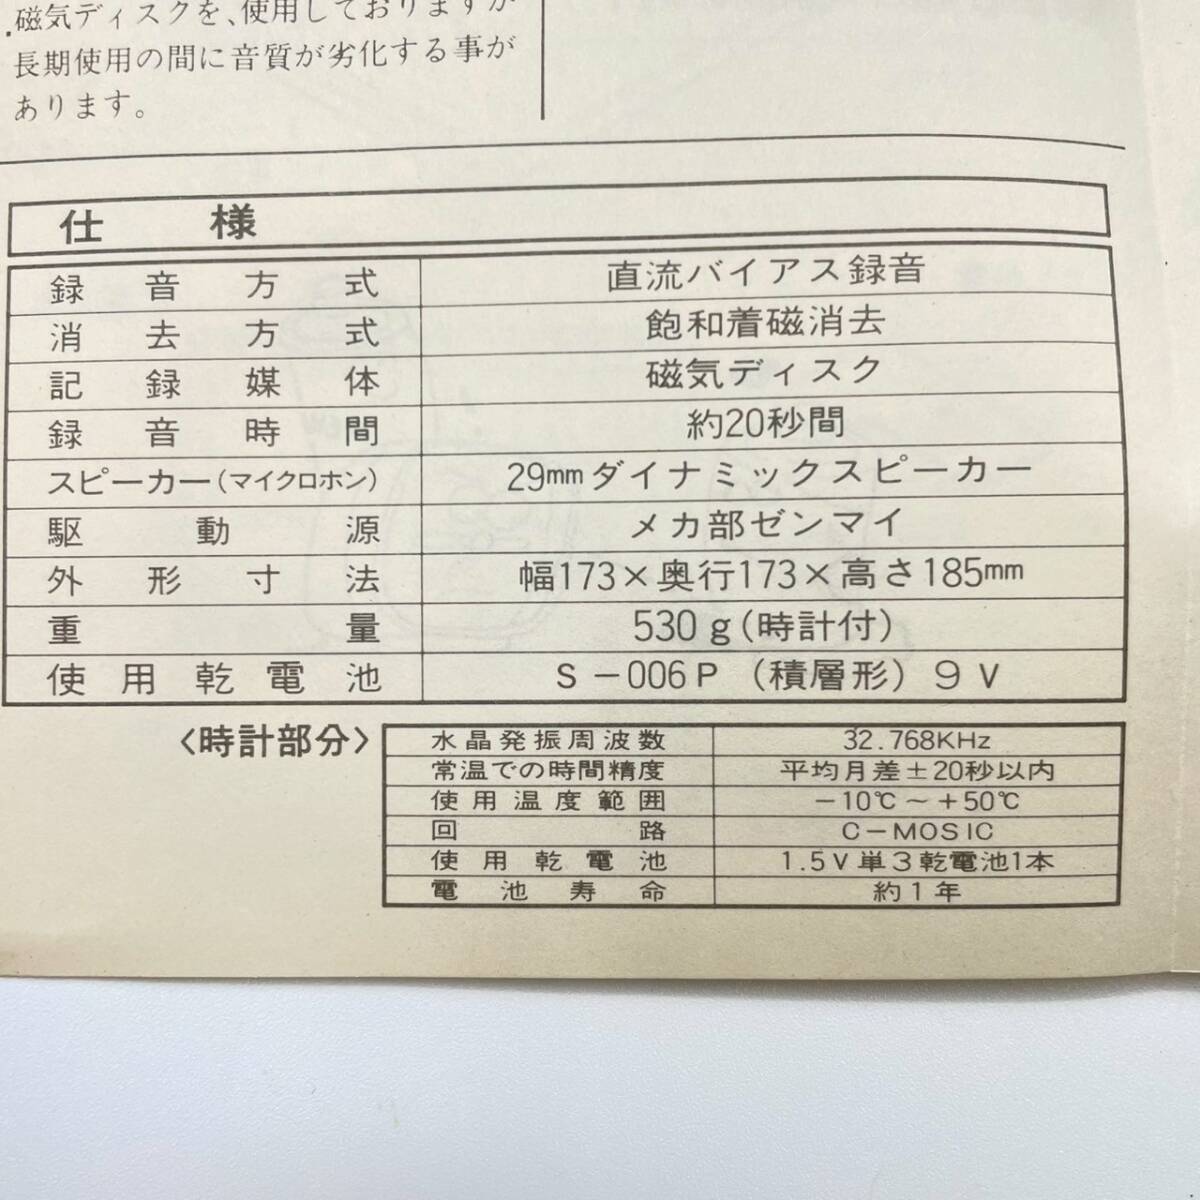 磁気ディスクを、使用しておりますが
長期使用の間に音質が劣化する事が
あります。
仕様
録音方式 直流バイアス録音
消去方式 飽和着磁消去
記録媒体 磁気ディスク
録音時間 約20秒間
スピーカー(マイクロホン) 29mmダイナミックスピーカー
駆動源 メカ部ゼンマイ
外形寸法 幅173×奥行173×高さ185mm
重量 530g(時計付)
使用乾電池 S-006P(積層形)9V
〈時計部分〉
水晶発振周波数 32.768KHz
常温での時間精度 平均月差±20秒以内
使用温度範囲 -10℃~+50℃
回路 C-MOSIC
使用乾電池 1.5V単3乾電池1本
電池寿命 約1年